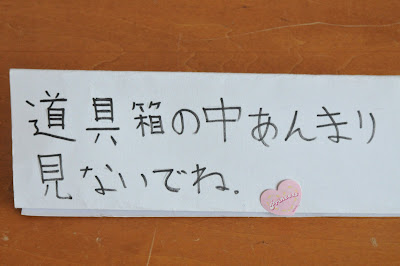 道具箱の中あんまり
見ないでね.